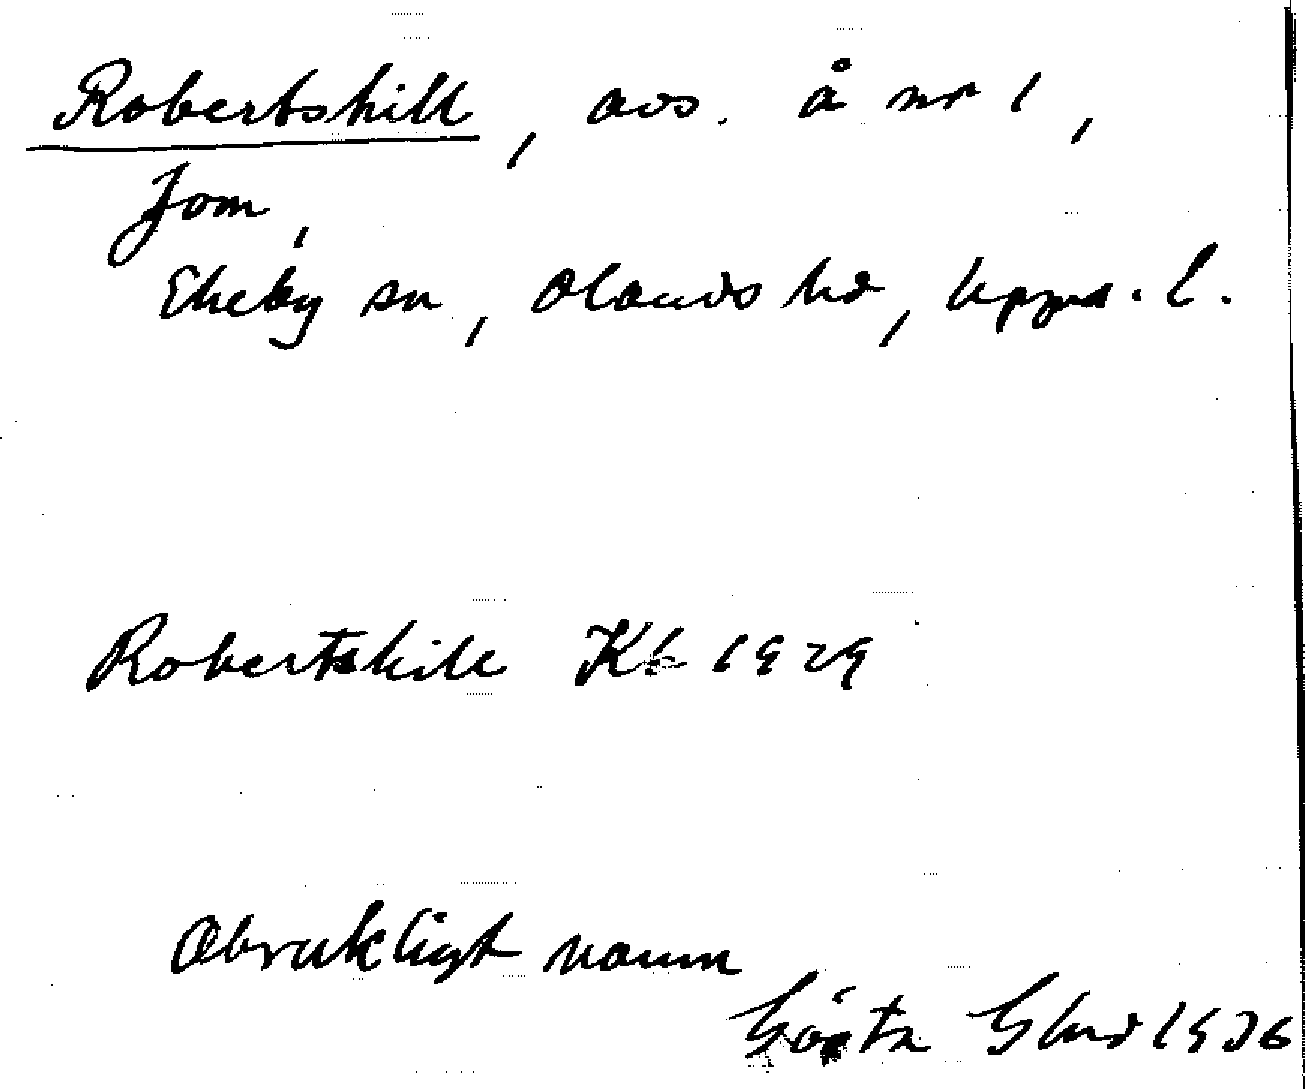 Robertshill, avs. å nr 1,
Jom,
Ekeby sn, Olands hd, Upps. l.
Robertskill Kb 1929
Obrukligt namn
Gösta 1936